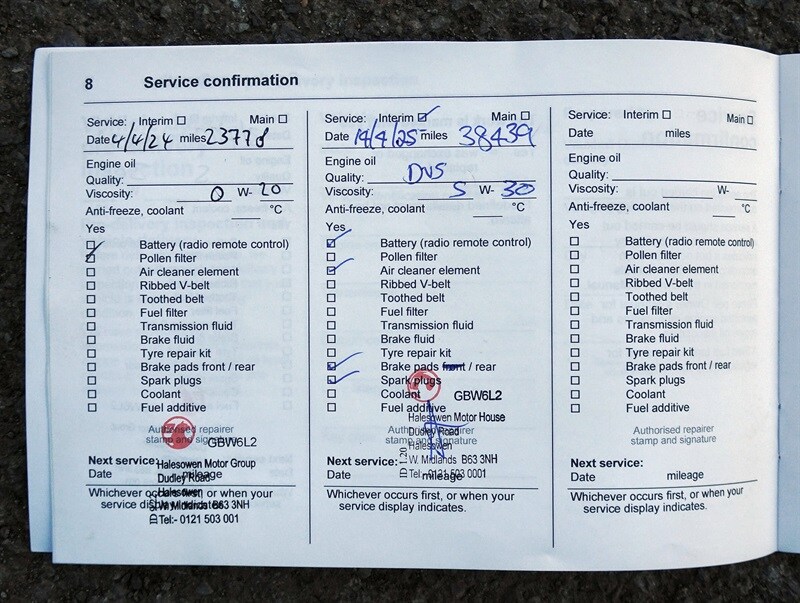 8 Service confirmation
Service: Interim Main
Date 4/4/24 miles 23778
Engine oil
Quality:
Viscosity: 0 W- 20
Anti-freeze, coolant °C
Yes
Battery (radio remote control)
Pollen filter
Air cleaner element
Ribbed V-belt
Toothed belt
Fuel filter
Transmission fluid
Brake fluid
Tyre repair kit
Brake pads front / rear
Spark plugs
Coolant
Fuel additive
Authorised repairer
stamp and signature
GBW6L2
Next service:
Date mileage
Halesowen Motor Group
Dudley Road
Halesowen
W. Midlands B63 3NH
Tel:- 0121 503 001
Whichever occurs first, or when your
service display indicates.
Service: Interim Main
Date 14/4/25 miles 38439
Engine oil
Quality: DVS
Viscosity: 5 W- 30
Anti-freeze, coolant °C
Yes
Battery (radio remote control)
Pollen filter
Air cleaner element
Ribbed V-belt
Toothed belt
Fuel filter
Transmission fluid
Brake fluid
Tyre repair kit
Brake pads front / rear
Spark plugs
Coolant
Fuel additive
GBW6L2
Halesowen Motor House
Dudley Road
Halesowen
W. Midlands B63 3NH
Tel:- 0121 503 0001
ID 1.20
Authorised repairer
stamp and signature
Next service:
Date mileage
Whichever occurs first, or when your
service display indicates.
Service: Interim Main
Date miles
Engine oil
Quality:
Viscosity: W-
Anti-freeze, coolant °C
Yes
Battery (radio remote control)
Pollen filter
Air cleaner element
Ribbed V-belt
Toothed belt
Fuel filter
Transmission fluid
Brake fluid
Tyre repair kit
Brake pads front / rear
Spark plugs
Coolant
Fuel additive
Authorised repairer
stamp and signature
Next service:
Date mileage
Whichever occurs first, or when your
service display indicates.